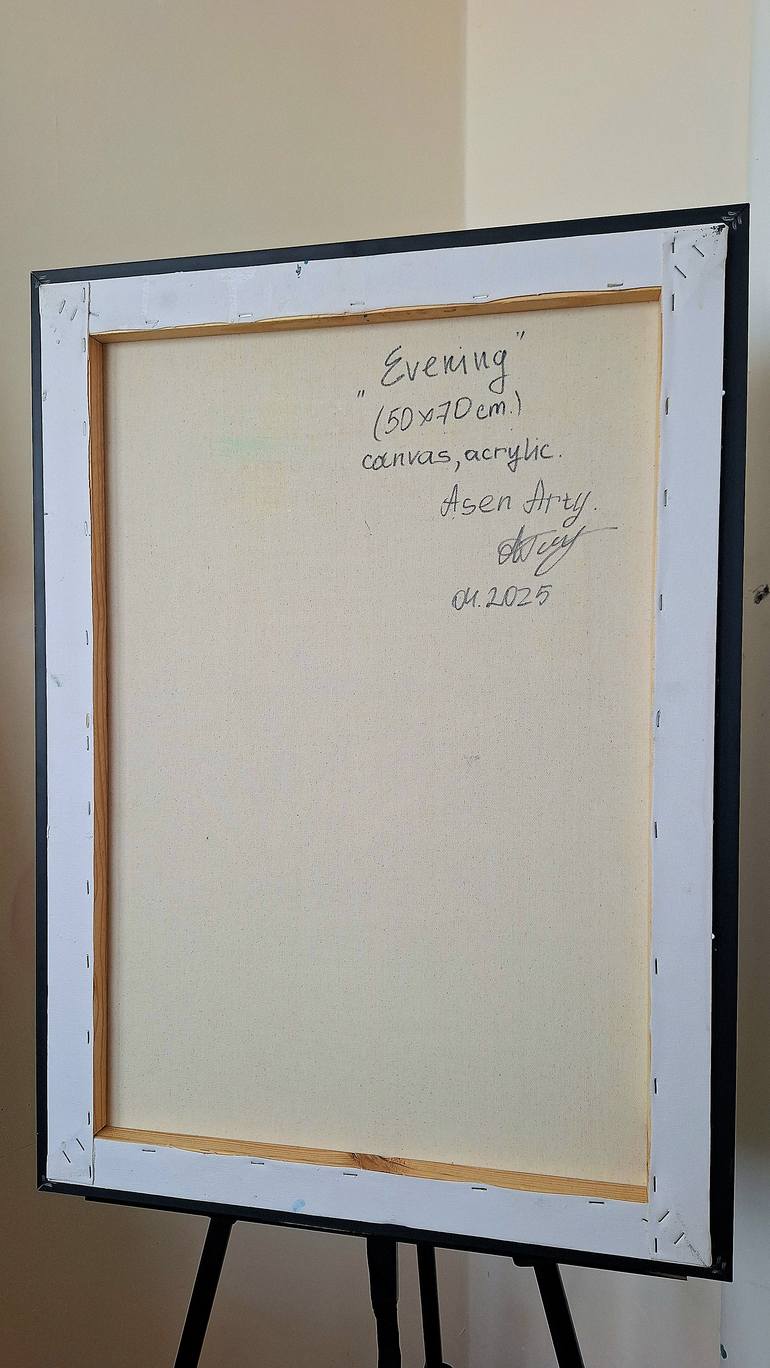 "Evening"
(50x70cm.)
canvas, acrylic.
Asen Arty.
04.2025